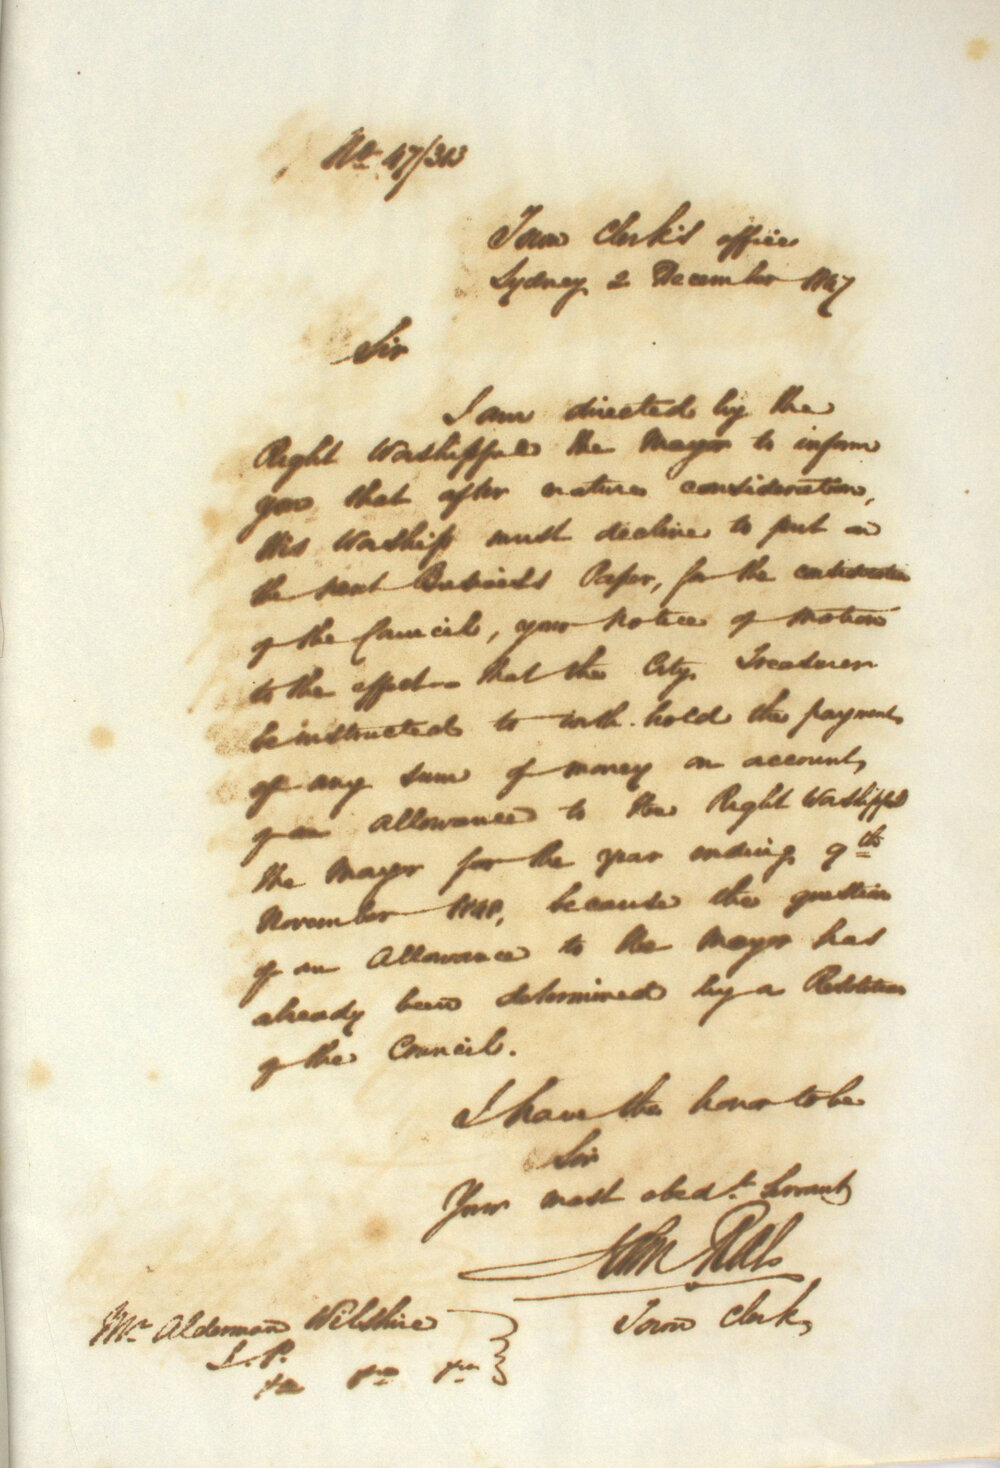 No 47/313
Town Clerk's office
Sydney 2 December 1847
Sir
I am directed by the
Right Worshipful the Mayor to inform
you that after mature consideration,
His Worship must decline to put on
the next Business Paper, for the consideration
of the Council, your notice of motion
to the effect - that the City Treasurer
be instructed to with hold the payment
of any sum of money on account
of an allowance to the Right Worshipful
the Mayor for the year ending 9th
November 1848, because the question
of an Allowance to the Mayor has
already been determined by a Resolution
of the Council.
I have the honor to be
Sir
Your most obedt. Servant
John
Town Clerk
Mr Alderman Wilshire
J.P.